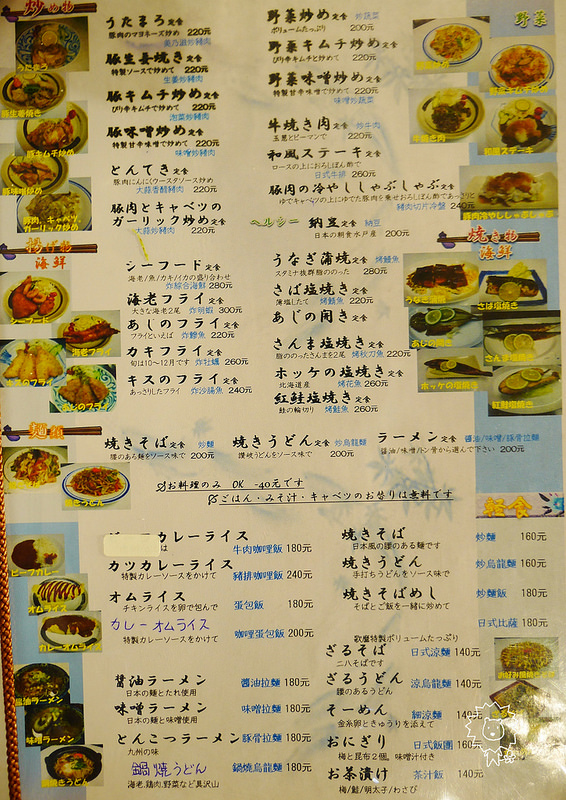 炒め物
うたまろ定食
豚肉のマヨネーズ炒め 220元
美乃滋炒豬肉
豚生姜焼き定食
特製ソースで炒めて 220元
生姜炒豬肉
豚キムチ炒め定食
ぴり辛キムチで炒めて 220元
泡菜炒豬肉
豚味噌炒め定食
特製甘辛味噌で炒めて 220元
味噌炒豬肉
とんてき定食
豚肉にんにくウースタソース炒め
大蒜香醋豬肉 220元
豚肉とキャベツの
ガーリック炒め定食
大蒜炒豬肉 220元
野菜
野菜炒め定食 炒蔬菜
ボリュームたっぷり 200元
野菜キムチ炒め定食
ぴり辛キムチと炒めて 220元
野菜味噌炒め定食
特製甘辛味噌で炒めて 220元
味噌炒蔬菜
牛焼き肉定食 炒牛肉
玉葱とピーマンで 220元
和風ステーキ定食
ロースの上におろしぽん酢で
日式牛排 260元
豚肉の冷やししゃぶしゃぶ定食
ゆでキャベツの上にゆでた豚肉を乗せおろしぽん酢であっさりと
豬肉切片冷盤 240元
ヘルシー 納豆定食 納豆
日本の朝食水戸産 200元
うたまろ
豚生姜焼き
豚キムチ炒め
豚味噌炒め
豚肉、キャベツ
ガーリック炒め
野菜炒め
野菜キムチ炒め
牛焼き肉
和風ステーキ
豚肉冷やししゃぶしゃぶ
揚げ物
海鮮
シーフード定食
海老/魚/カキ/イカの盛り合わせ
炸綜合海鮮 280元
海老フライ定食
大きな海老2尾 炸明蝦 300元
あじのフライ定食
フライといえば 炸鰺魚 220元
カキフライ定食
旬は10～12月です 炸牡蠣 260元
キスのフライ定食
あっさりしたフライ 炸沙腸魚 240元
焼き物
海鮮
うなぎ蒲焼定食 烤鰻魚
スタミナ抜群脂ののった 280元
さば塩焼き定食
薄塩したて 烤鯖魚 220元
あじの開き定食
さんま塩焼き定食
脂ののったさんまを2尾 烤秋刀魚 220元
ホッケの塩焼き定食
北海道産 烤花魚 260元
紅鮭塩焼き定食
鮭の輪切り 烤鮭魚 260元
シーフード
海老フライ
キスのフライ
あじのフライ
うなぎ蒲焼
さば塩焼き
あじの開き
さんま塩焼き
ホッケの塩焼き
紅鮭塩焼き
麺類
焼きそば定食 炒麵
腰のある麺をソース味で 200元
焼きうどん定食 炒烏龍麵
讃岐うどんをソース味で 200元
ラーメン定食 醬油/味噌/豚骨拉麵
醤油/味噌/トン骨から選んで下さい 200元
焼きうどん
☆お料理のみ OK -40元です
☆ごはん・みそ汁・キャベツのお替りは無料です
軽食
カレーライス
牛肉咖哩飯 180元
カツカレーライス
特製カレーソースをかけて 豬排咖哩飯 240元
オムライス
チキンライスを卵で包んで 蛋包飯 180元
カレーオムライス
特製カレーソースをかけて 咖哩蛋包飯 200元
醤油ラーメン
日本の麺とたれ使用 醬油拉麵 180元
味噌ラーメン
日本の麺と味噌使用 味噌拉麵 180元
とんこつラーメン
九州の味 豚骨拉麵 180元
鍋焼うどん
海老、鶏肉、野菜など具沢山 鍋燒烏龍麵 180元
焼きそば
日本風の腰のある麺です 炒麵 160元
焼きうどん
手打ちうどんをソース味で 炒烏龍麵 160元
焼きそばめし
そばとご飯を一緒に炒めて 炒麵飯 180元
日式比薩 180元
歌麿特製ボリュームたっぷり
ざるそば
二八そばです 日式涼麵 140元
ざるうどん
腰のあるうどん 涼烏龍麵 140元
そーめん
金糸卵ときゅうりを添えて 細涼麵 140元
おにぎり
梅と昆布2個。味噌汁付き 日式飯團 160元
お茶漬け
梅/鮭/明太子/わさび 茶汁飯 140元
ビーフカレー
オムライス
カレーオムライス
醤油ラーメン
味噌ラーメン
鍋焼きうどん